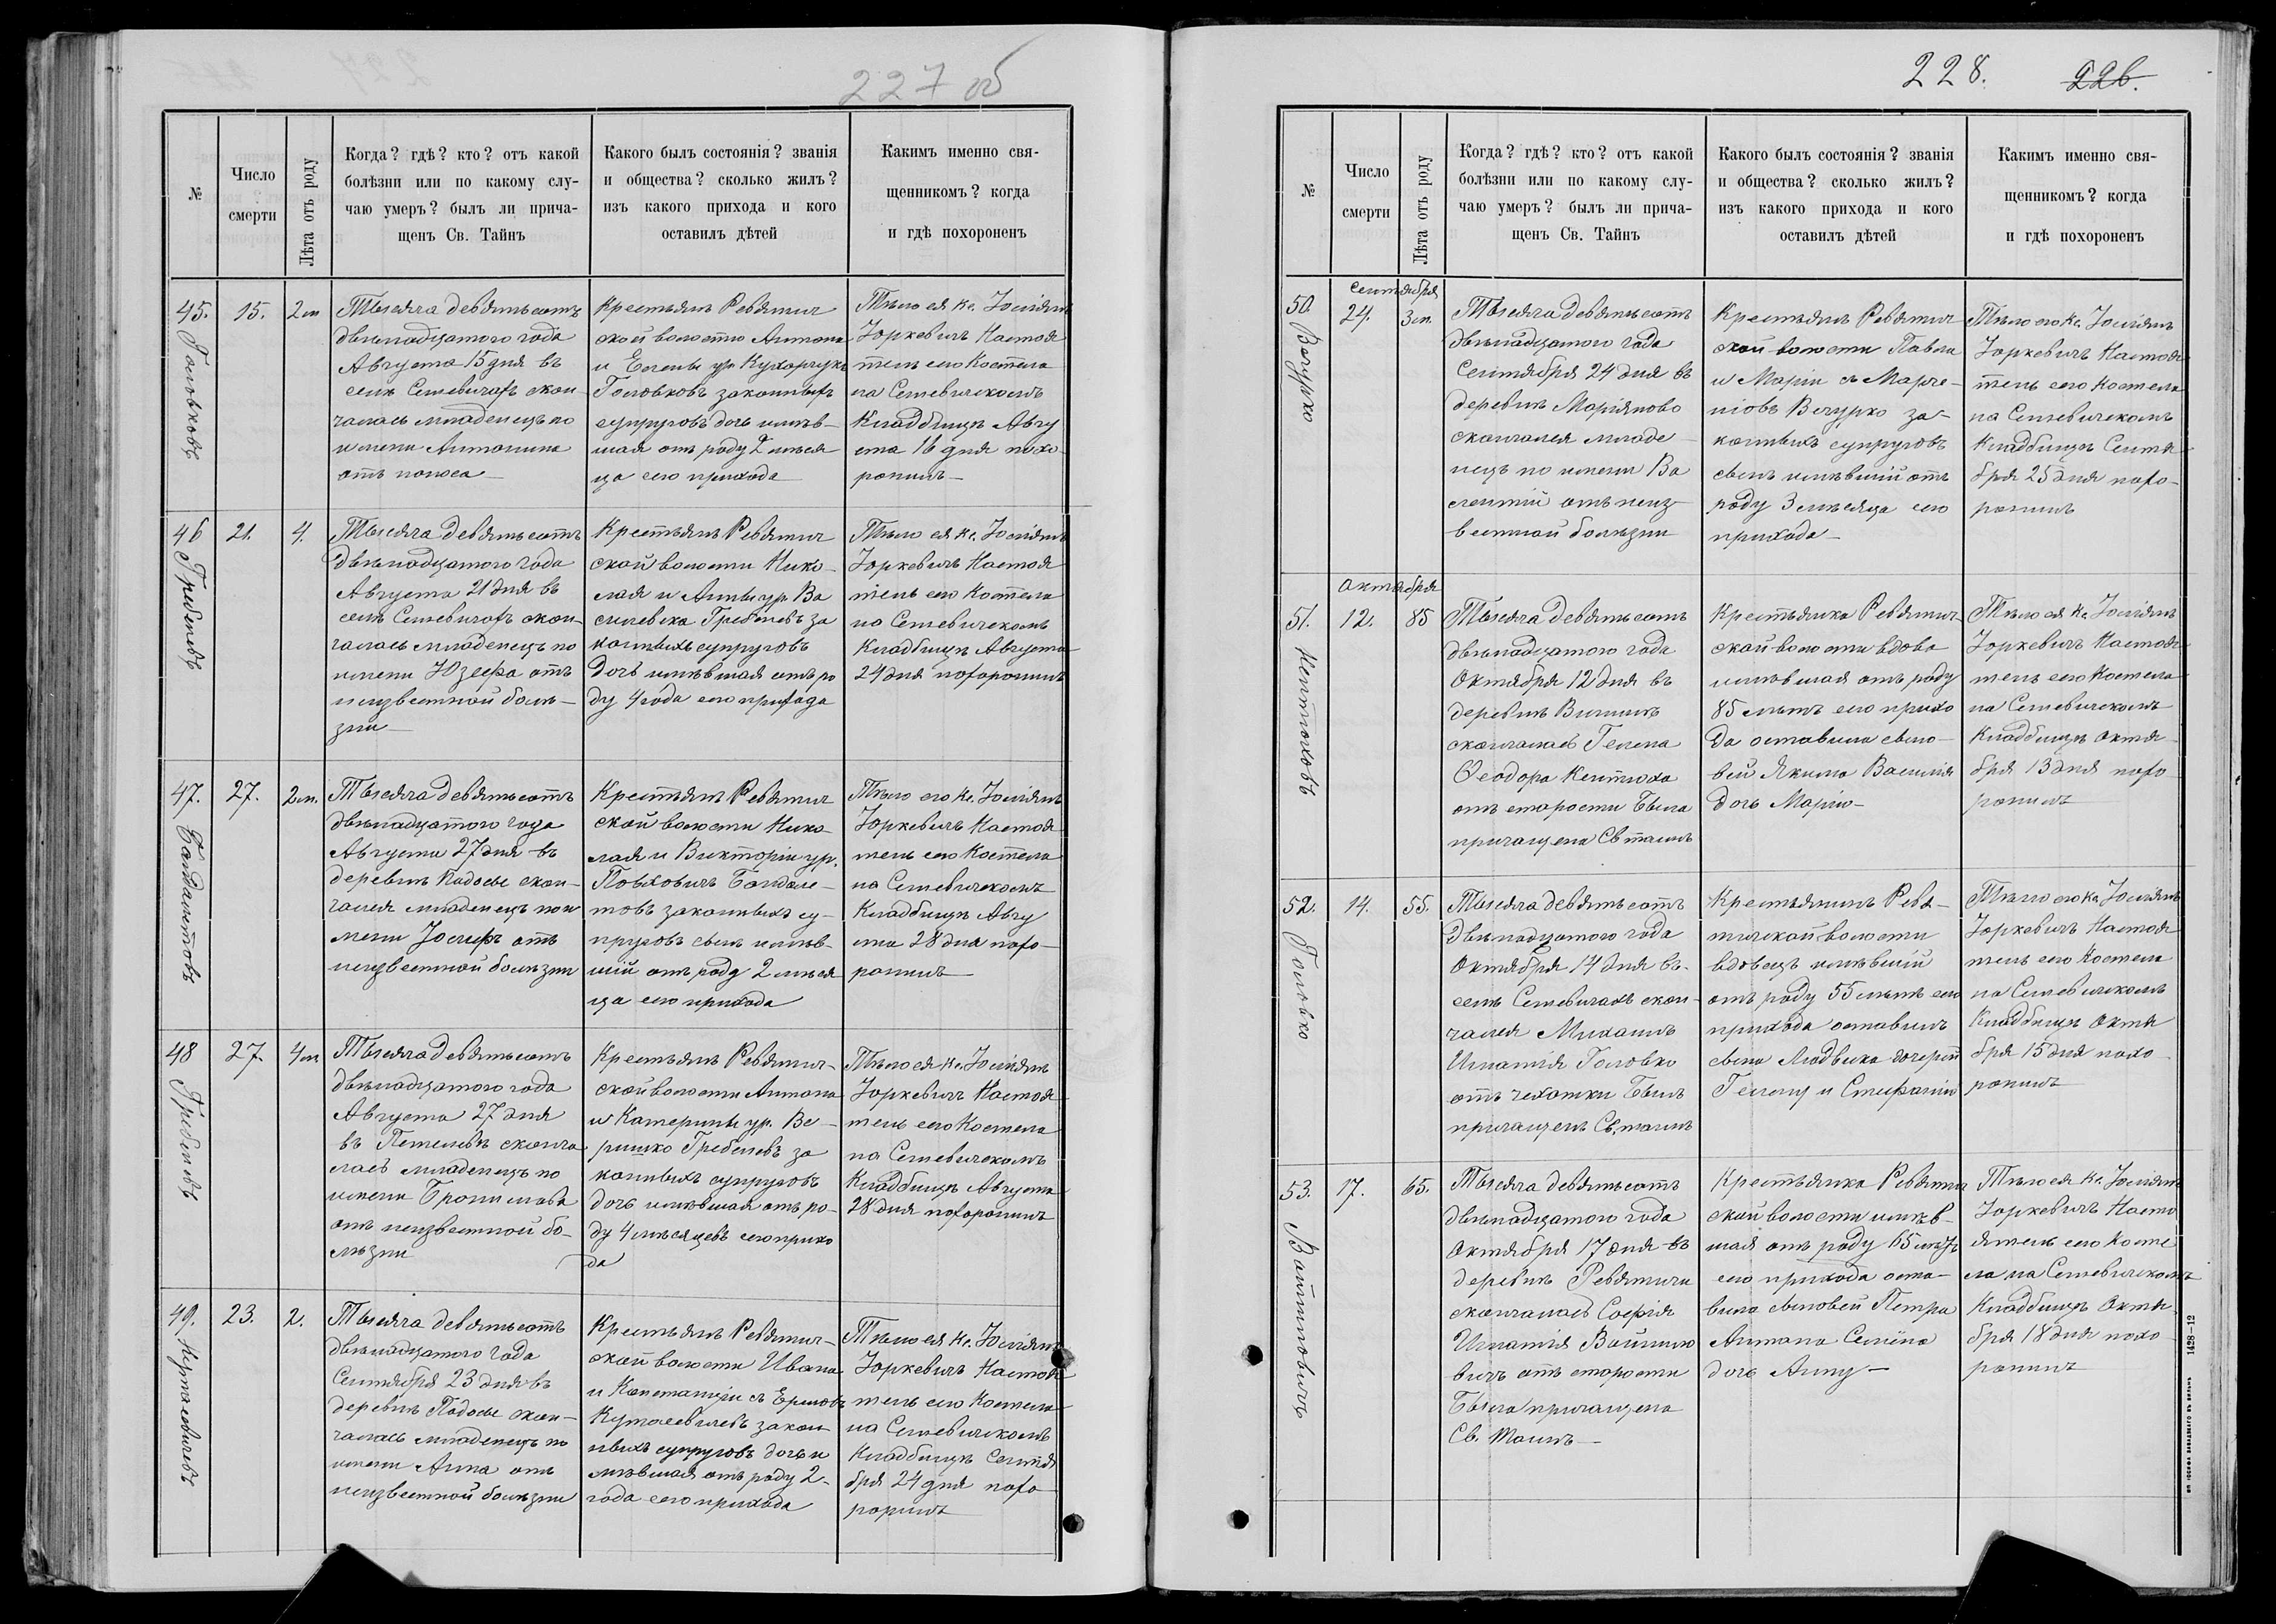 227 об
№
Число
смерти
Лѣта отъ роду
Когда? гдѣ? кто? отъ какой
болѣзни или по какому слу-
чаю умеръ? былъ ли прича-
щенъ Св. Тайнъ
Какого былъ состоянія? званія
и общества? сколько жилъ?
изъ какого прихода и кого
оставилъ дѣтей
Какимъ именно свя-
щенникомъ? когда
и гдѣ похороненъ
45.
Головковъ
15.
2 м
Тысяча девятьсотъ
двѣнадцатого года
Августа 15 дня въ
селѣ Сегневичахъ скон-
чалась младенецъ по
имени Антонина
отъ поноса
Крестьянъ Ревятич
ской волости Антона
и Елены ур. Кухарчукъ
Головковъ законныхъ
супруговъ дочь имѣв-
шая отъ роду 2 мѣся
ца сего прихода
Тѣло ея Кс. Юліянъ
Юркевичъ Настоя
тель сего Костела
на Сегневичскомъ
Кладбищѣ Авгу
ста 16 дня похо
ронилъ
46
Грибелевъ
21.
4.
Тысяча девятьсотъ
двѣнадцатого года
Августа 21 дня въ
селѣ Сегневичахъ скон-
чалась младенецъ по
имени Юзефа отъ
неизвестной болѣ-
зни
Крестьянъ Ревятич
ской волости Нико-
лая и Анны ур. Ва
силевска Грибелевъ за
конныхъ супруговъ
дочь имѣвшая отъ ро
ду 4 года сего прихода
Тѣло ея Кс. Юліянъ
Юркевичъ Настоя
тель сего Костела
на Сегневичскомъ
Кладбищѣ Августа
24 дня похоронилъ
47.
27.
2 м.
Тысяча девятьсотъ
двѣнадцатого года
Августа 27 дня въ
деревнѣ Падосье скон-
чался младенецъ по и
мени Іосифъ отъ
неизвестной болѣзни
Крестьянъ Ревятич
ской волости Нико-
лая и Викторіи ур.
законныхъ су-
пруговъ сынъ имѣв-
шій отъ роду 2 мѣся
ца сего прихода
Тѣло его Кс. Юліянъ
Юркевичъ Настоя
тель сего Костела
на Сегневичскомъ
Кладбищѣ Авгу
ста 28 дня похо-
ронилъ
48
Грибелевъ
27.
4 м
Тысяча девятьсотъ
двѣнадцатого года
Августа 27 дня
въ сконча
лась младенецъ по
имени Бронислава
отъ неизвестной бо-
лѣзни
Крестьянъ Ревятич-
ской волости Антона
и Катерины ур. Ве-
ришко Грибелевъ за
конныхъ супруговъ
дочь имѣвшая отъ ро-
ду 4 мѣсяцевъ сего прихо
да
Тѣло ея Кс. Юліянъ
Юркевичъ Настоя
тель сего Костела
на Сегневичскомъ
Кладбищѣ Августа
28 дня похоронилъ
49.
23.
2.
Тысяча девятьсотъ
двѣнадцатого года
Сентября 23 дня въ
деревнѣ Падосье скон-
чалась младенецъ по
имени Анна отъ
неизвестной болѣзни
Крестьянъ Ревятич-
ской волости Ивана
и Констанціи съ
закон
ныхъ супруговъ дочь и
мѣвшая отъ роду 2-
года сего прихода
Тѣло ея Кс. Юліянъ
Юркевичъ Настоя
тель сего Костела
на Сегневичскомъ
Кладбищѣ Сентя
бря 24 дня похо
ронилъ
228.
226.
№
Число
смерти
Лѣта отъ роду
Когда? гдѣ? кто? отъ какой
болѣзни или по какому слу-
чаю умеръ? былъ ли прича-
щенъ Св. Тайнъ
Какого былъ состоянія? званія
и общества? сколько жилъ?
изъ какого прихода и кого
оставилъ дѣтей
Какимъ именно свя-
щенникомъ? когда
и гдѣ похороненъ
50.
Вечурко
Сентября
24.
3 м.
Тысяча девятьсотъ
двѣнадцатого года
Сентября 24 дня въ
деревнѣ Маріяново
скончался младе
нецъ по имени Ва
лентій отъ неиз-
вестной болѣзни
Крестьянъ Ревятич
ской волости Павла
и Маріи съ Марче-
ніовъ Вечурко за-
конныхъ супруговъ
сынъ имѣвшій отъ
роду 3 мѣсяца сего
прихода
Тѣло его Кс. Юліянъ
Юркевичъ Настоя
тель сего Костела
на Сегневичскомъ
Кладбищѣ Сентя
бря 25 дня похо-
ронилъ
Октября
51.
Кентюховъ
12.
85
Тысяча девятьсотъ
двѣнадцатого года
Октября 12 дня въ
деревнѣ
скончалась Гелена
Феодора Кентюха
отъ старости была
причащена Св таинъ
Крестьянка Ревятич
ской волости вдова
имѣвшая отъ роду
85 лѣтъ сего прихо
да оставила сыно-
вей Якима Василія
дочь Марію
Тѣло ея Кс. Юліянъ
Юркевичъ Настоя
тель сего Костела
на Сегневичскомъ
Кладбищѣ Октя
бря 13 дня похо
ронилъ
52.
Головко
14.
55.
Тысяча девятьсотъ
двѣнадцатого года
Октября 14 дня въ
селѣ Сегневичахъ скон-
чался Михаилъ
Игнатія Головко
отъ чехотки былъ
причащенъ Св. таинъ
Крестьянинъ Ревя-
тичской волости
вдовецъ имѣвшій
отъ роду 55 лѣтъ сего
прихода оставилъ
сына Людвика дочерей
Гелену и Стефанію
Тѣло его Кс. Юліянъ
Юркевичъ Настоя
тель сего Костела
на Сегневичскомъ
Кладбищѣ Октя
бря 15 дня похо
ронилъ
53.
Войтиловичъ
17.
65.
Тысяча девятьсотъ
двѣнадцатого года
Октября 17 дня въ
деревнѣ Ревятичи
скончалась Софія
Игнатія
вичъ отъ старости
Была причащена
Св. Таинъ
Крестьянка Ревятич
ской волости имѣв-
шая отъ роду 65 лѣтъ
сего прихода оста-
вила сыновей Петра
Антона Семёна
дочь Анну
Тѣло ея Кс. Юліянъ
Юркевичъ Насто
ятель сего Косте
ла на Сегневичскомъ
Кладбищѣ Октя-
бря 18 дня похо
ронилъ
1428—12